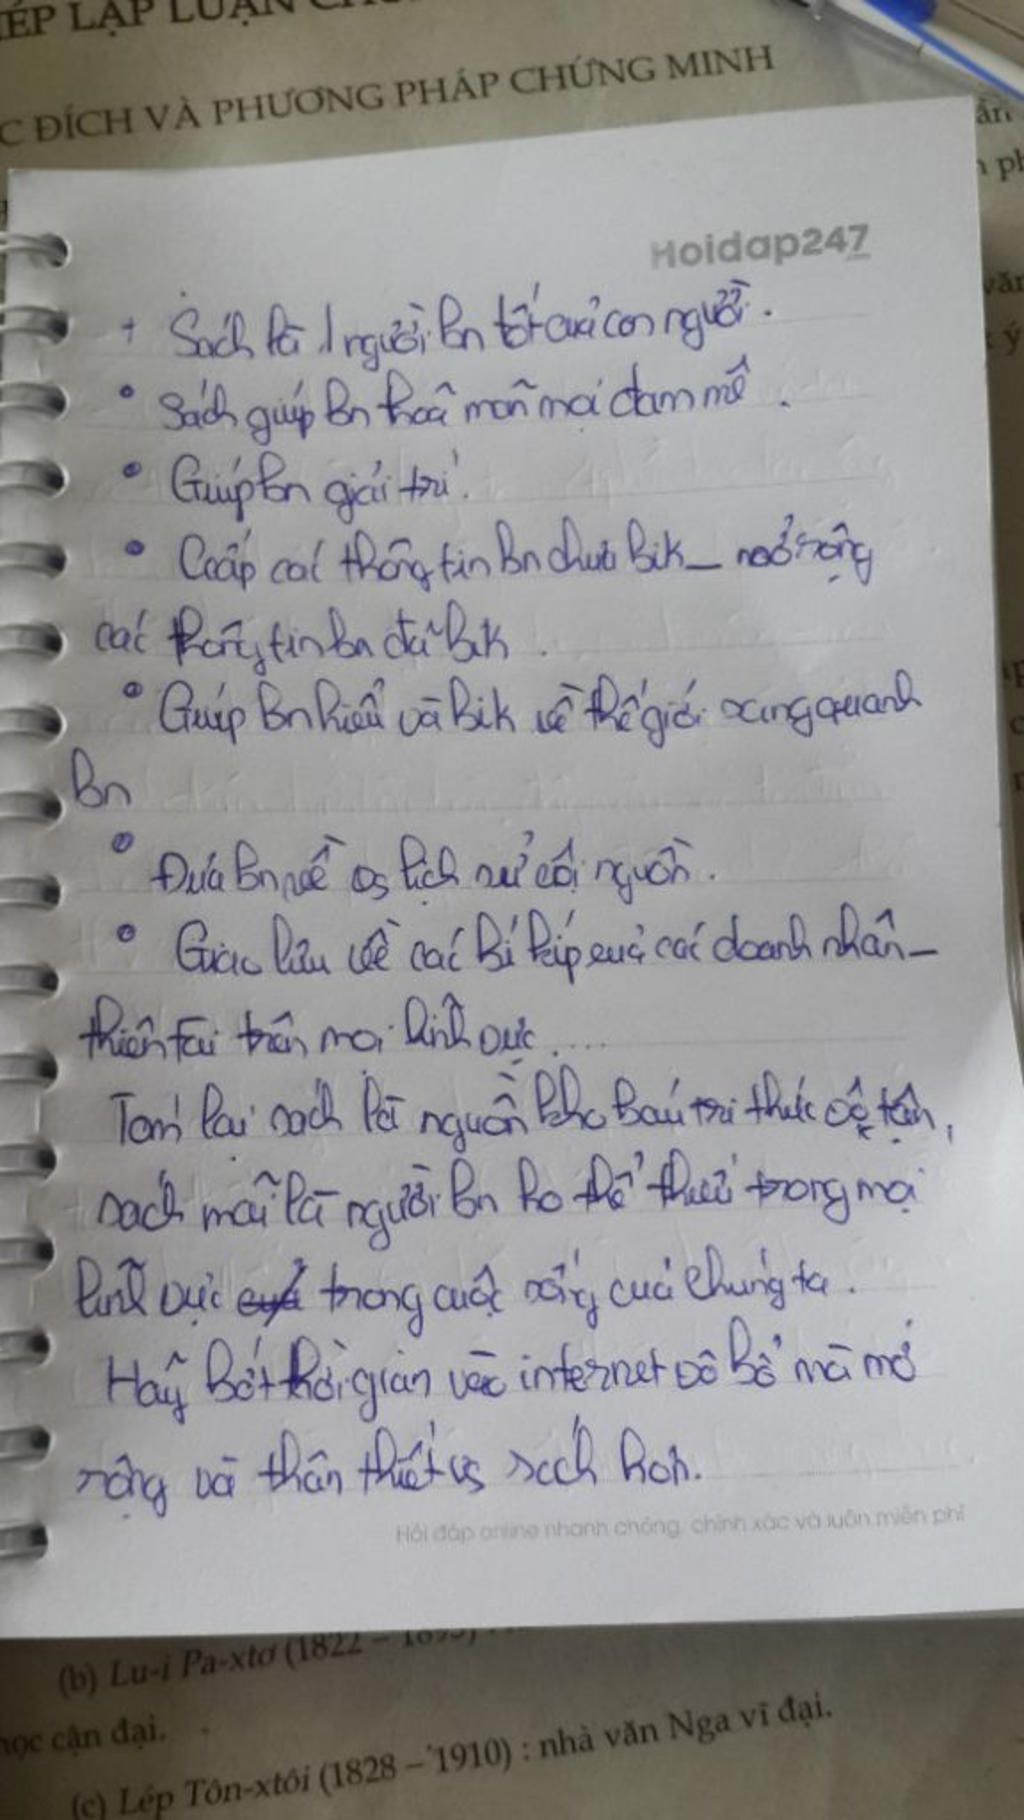 ÉP LẬP LUẬN
C ĐÍCH VÀ PHƯƠNG PHÁP CHỨNG MINH
Hoidap247
+ Sách là 1 người bn tốt của con người.
• Sách giúp bn thoã mãn mọi đam mê.
• Giúp bn giải trí.
• Ccấp các thông tin bn chưa bik_ mở rộng
các thông tin bn đã bik.
• Giúp bn hiểu và bik về thế giới xung quanh
bn
• Đưa bn về vs lịch sử cội nguồn.
• Giao lưu về các bí kíp của các doanh nhân_
thiên tài trên mọi lĩnh vực....
Tóm lại sách là nguồn kho báu tri thức vô tận,
sách mãi là người bn ko thể thiếu trong mọi
lĩnh vực của trong cuộc sống của chúng ta.
Hãy bớt thời gian vào internet vô bổ mà mở
rộng và thân thiết vs sách hơn.
Hỏi đáp online nhanh chóng, chính xác và luôn miễn phí
(b) Lu-i Pa-xtơ (1822 – 1895)
học cận đại.
(c) Lép Tôn-xtôi (1828 – 1910) : nhà văn Nga vĩ đại.